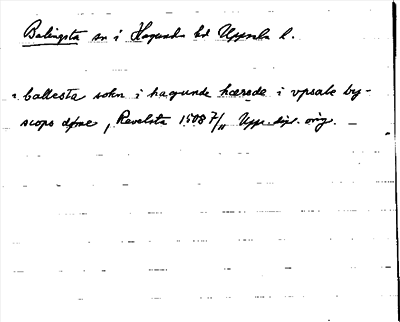 Balingsta sn i Hagunda hd Uppsala l.
ballesta sokn i hagunde hærede i vpsale by-
scops døme, Revelsta 1508 7/11 Upps. dipl. orig.